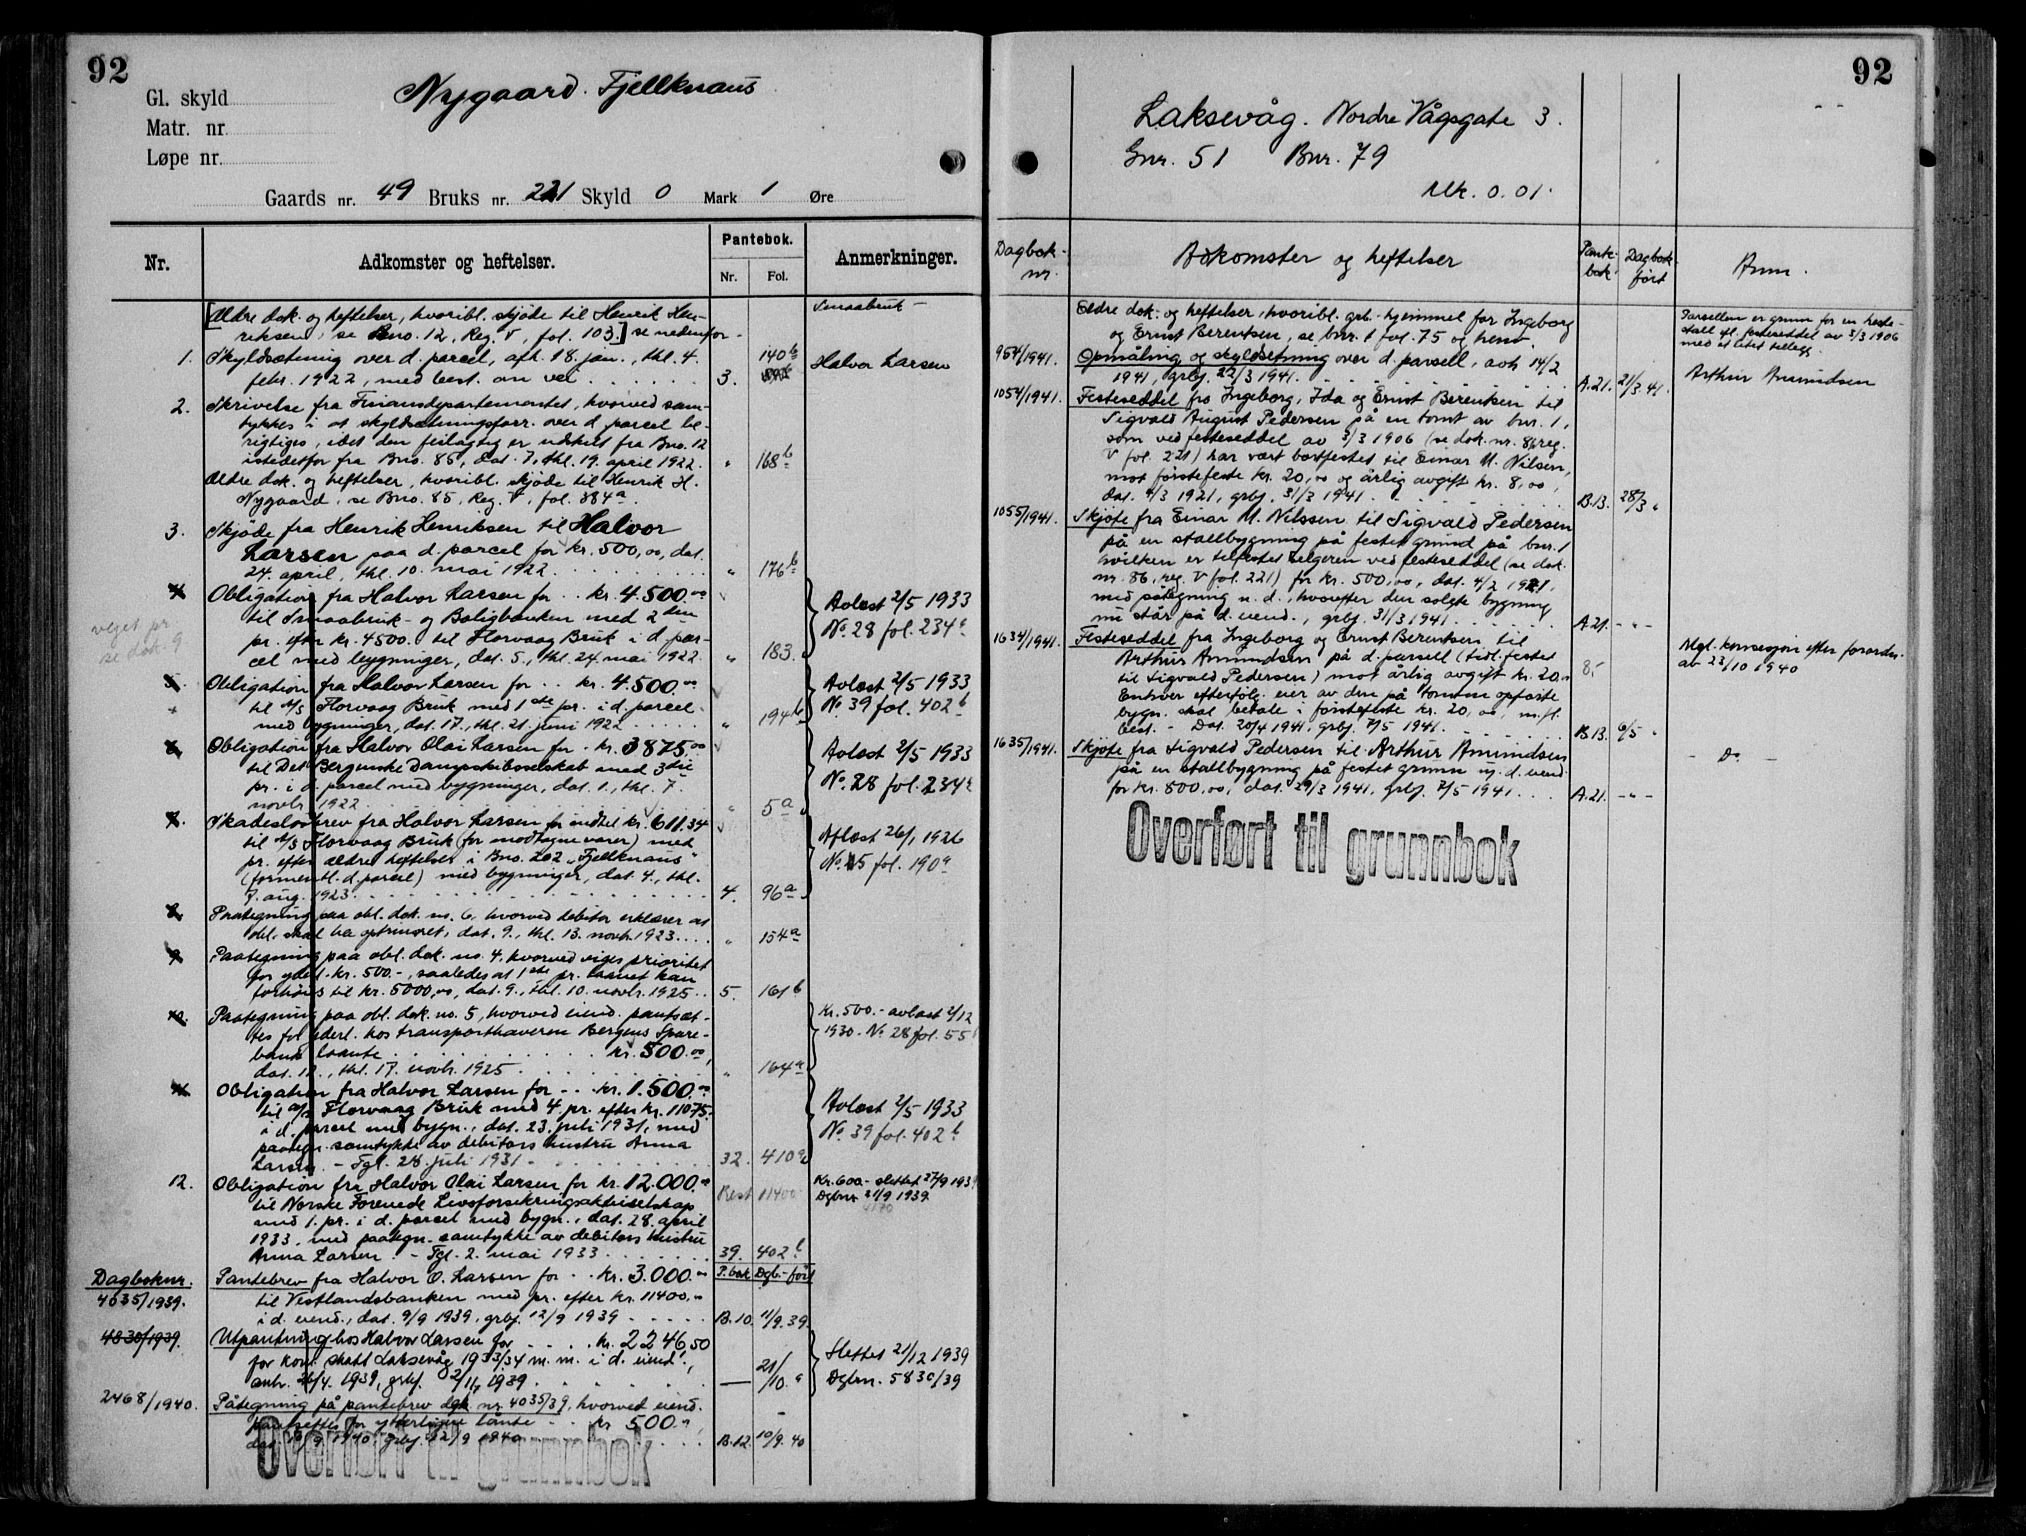 92
Gl. skyld
Matr. nr.
Løpe nr.
Nygaard. Fjellknaus
Gaards nr. 49 Bruks nr. 221 Skyld 0 Mark 1 Øre
Nr.
Adkomster og heftelser.
Pantebok.
Nr. Fol.
Anmerkninger.
[Ældre dok. og heftelser, hvoribl. skjøde til Henrik Hen-
riksen, se Bno. 12, Reg. V, fol. 103.] se nedenfor
Smaabruk
1. Skyldsætning over d. parcel, afh. 18. jan., thl. 4.
febr. 1922, med best. om vei 3. 140 b
Halvor Larsen
2. Skrivelse fra Finansdepartementet, hvorved sam-
tykkes i at skyldsætningsforr. over d. parcel be-
rigtiges, idet den feilagtig er utskilt fra Bno. 12
istedetfor fra Bno. 85, dat. 7., thl. 19. april 1922. " 168 b
Ældre dok. og heftelser, hvoribl. skjøde til Henrik H.
Nygaard, se Bno. 85, Reg. V, fol. 384 a.
3. Skjøde fra Henrik Henriksen til Halvor
Larsen paa d. parcel for kr. 500,00, dat.
24. april, thl. 10. mai 1922 " 176 b
4. Obligation fra Halvor Larsen for kr. 4.500.00
til Smaabruk- og Boligbanken med 2 den
pr. efter kr. 4500 til Florvaag Bruk i d. par-
cel med bygninger, dat. 5., thl. 24. mai 1922. " 183.
Avlest 2/5 1933
No. 28 fol. 234 a
veget pr.
se dok. 9
5. Obligation fra Halvor Larsen for kr. 4.500.00
til A/S Florvaag Bruk med 1 ste pr. i d. parcel
med bygninger, dat. 17., thl. 21. juni 1922 " 194 b
Avlest 2/5 1933
No. 39 fol. 402 b
6. Obligation fra Halvor Olai Larsen for kr. 3875.00
til Det Bergenske Dampskibsselskab med 3 die
pr. i d. parcel med bygninger, dat. 1., thl. 7.
novbr. 1922 " 5 a
Avlest 2/5 1933
No. 28 fol. 234 a
7. Skadesløsbrev fra Halvor Larsen for indtil kr. 611.34
til A/S Florvaag Bruk (for modtagne varer) med
pr. efter ældre heftelser i Bno. 202 "Fjellknaus"
(formentl. d. parcel) med bygninger, dat. 4., thl.
7. aug. 1923. 4. 96 a
Aflest 26/1 1926
No. 15 fol. 190 a
8. Paategning paa obl. dok. no. 6, hvorved debitor erklærer at
obl. skal ha opt. prioret, dat. 9., thl. 13. novbr. 1923. " 154 a
9. Paategning paa obl. dok. no. 4, hvorved viges prioritet
for yderl. kr. 500.-, saaledes at 1 ste pr. laanet kan
forhøies til kr. 5000,00, dat. 9., thl. 10. novbr. 1925 5. 161 b
10. Paategning paa obl. dok. no. 5, hvorved eiend. pantsæt-
tes for yderl. hos transporthaveren Bergens Spare-
bank laante kr. 500.00,
dat. 12., thl. 17. novbr. 1925 " 164 a
Kr. 500.- avlest 2/12
1930. No. 28 fol. 55
11. Obligation fra Halvor Larsen for kr. 1.500.00
til A/S Florvaag Bruk med 4. pr. efter kr. 11075.-
i d. parcel med bygn., dat. 23. juli 1931, med
paategn. samtykke av debitors hustru Anna
Larsen. – Tgl. 28. juli 1931 32. 410 a
Avlest 2/5 1933
No. 39 fol. 402 b
12. Obligation fra Halvor Olai Larsen for kr. 12.000.00
til Norske Forenede Livsforsikringsaktieselskap
med 1. pr. i d. parcel med bygn., dat. 28. april
1933, med paategn. samtykke av debitors hustru
Anna Larsen. – Tgl. 2. mai 1933 39. 402 b
Rest 11400
Kr. 600.- slettet 27/9 1939
Dgbnr. 21/9 1939.
4170
Dagboknr.
P.bok Dgb.-ført
4035/1939. Pantebrev fra Halvor O. Larsen for kr. 3.000.00
til Vestlandsbanken med pr. efter kr. 11400,00
i d. eiend., dat. 9/9 1939, grbf. 12/9 1939 B.10. 11/9.39.
4830/1939. Utpantning hos Halvor Larsen for kr. 2246,50
for kom. skatt Laksevåg 1933/34 m. m. i d. eiend.,
anh. 26/4. 1939, grbf. 2/11 1939 — 21/10. "
Slettet 21/12 1939
Dgbnr. 5830/39
2468/1940. Påtegning på pantebrev dgb. nr. 4035/39, hvorved eiend.
pantsettes for ytterligere lånte kr. 500.00,
dat. 10/9 1940, grbf. 12/9 1940 B.12. 10/9.40
Overført til grunnbok
92
Laksevåg. Nordre Vågsgate 3.
Gnr. 51 Bnr. 79
Mk. 0.01.
Dagbok-
nr.
Adkomster og heftelser
Pante-
bok
Dagbok-
ført
Anm.
Eldre dok. og heftelser, hvoribl. grb.-hjemmel for Ingeborg
og Ernst Berentsen, se bnr. 1 fol. 75 og henv.
Parsellen er grunn for en heste-
stall efl. festeseddel av 3/3 1906
med et litet tillegg.
954/1941. Opmåling og skyldsetning over d. parsell, avh. 14/2
1941, grbf. 22/3 1941. A.21. 21/3 41.
Arthur Amundsen
1054/1941. Festeseddel fra Ingeborg, Ida og Ernst Berentsen til
Sigvald August Pedersen på en tomt av bnr. 1,
som ved festeseddel av 3/3 1906 (se dok. nr. 86 reg.
V fol. 221) har vært bortfestet til Einar M. Nilsen,
mot førstefeste kr. 20,00 og årlig avgift kr. 8,00,
dat. 4/3 1921, grbf. 31/3 1941. B.13. 28/3 "
1055/1941. Skjøte fra Einar M. Nilssen til Sigvald Pedersen
på en stallbygning på festet grund på bnr. 1
hvilken er tilfestet selgeren ved festeseddel (se dok.
nr. 86, reg. V fol. 221) for kr. 500,00, dat. 4/2 1921,
med påtegning u. d., hvorefter den solgte bygning
nu står på d. eiend., grbf. 31/3 1941. A.21. - " -
1634/1941. Festeseddel fra Ingeborg og Ernst Berentsen til
Arthur Amundsen på d. parsell (tidl. festet
til Sigvald Pedersen) mot årlig avgift kr. 20,00
Enhver efterfølg. eier av den på tomten opførte
bygn. skal betale i førstefeste kr. 20,00, m. fl.
best. – Dat. 20/4 1941, grbf. 7/5 1941. B.13. 6/5 "
8,
Megl. konsesjon efter forordn.
av 23/10 1940
1635/1941. Skjøte fra Sigvald Pedersen til Arthur Amundsen
på en stallbygning på festet grunn i d. eiend.
for kr. 800,00, dat. 29/3 1941, grbf. 7/5 1941. A.21. - " -
- Do -
Overført til grunnbok